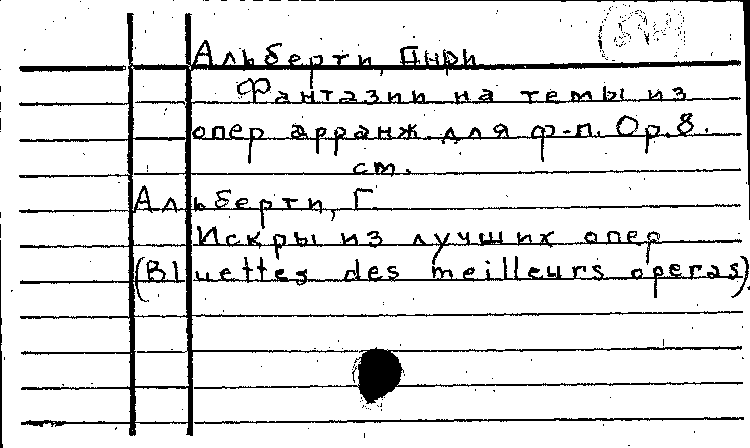 Альберти, Анри
Фантазии на темы из
опер арранж. для ф-п. Op. 8.
см.
Альберти, Г.
Искры из лучших опер
(Bluettes des meilleurs operas).